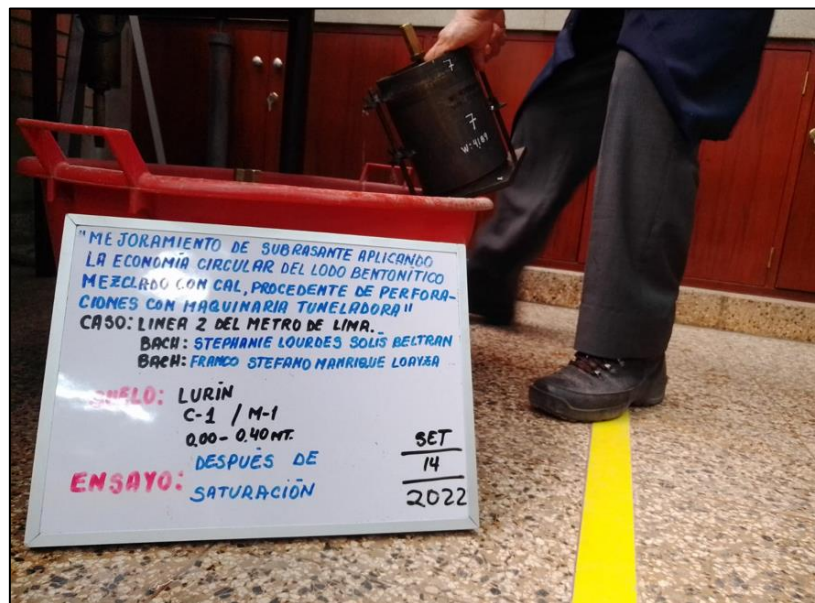 7
7
W-4189
"MEJORAMIENTO DE SUBRASANTE APLICANDO
LA ECONOMÍA CIRCULAR DEL LODO BENTONÍTICO
MEZCLADO CON CAL, PROCEDENTE DE PERFORA-
CIONES CON MAQUINARIA TUNELADORA"
CASO: LINEA 2 DEL METRO DE LIMA.
BACH: STEPHANIE LOURDES SOLÍS BELTRAN
BACH: FRANCO STEFANO MANRIQUE LOAYZA
SUELO: LURÍN
C-1 / M-1
0,00 - 0,40 MT.
ENSAYO: DESPUÉS DE
SATURACIÓN
SET
14
2022